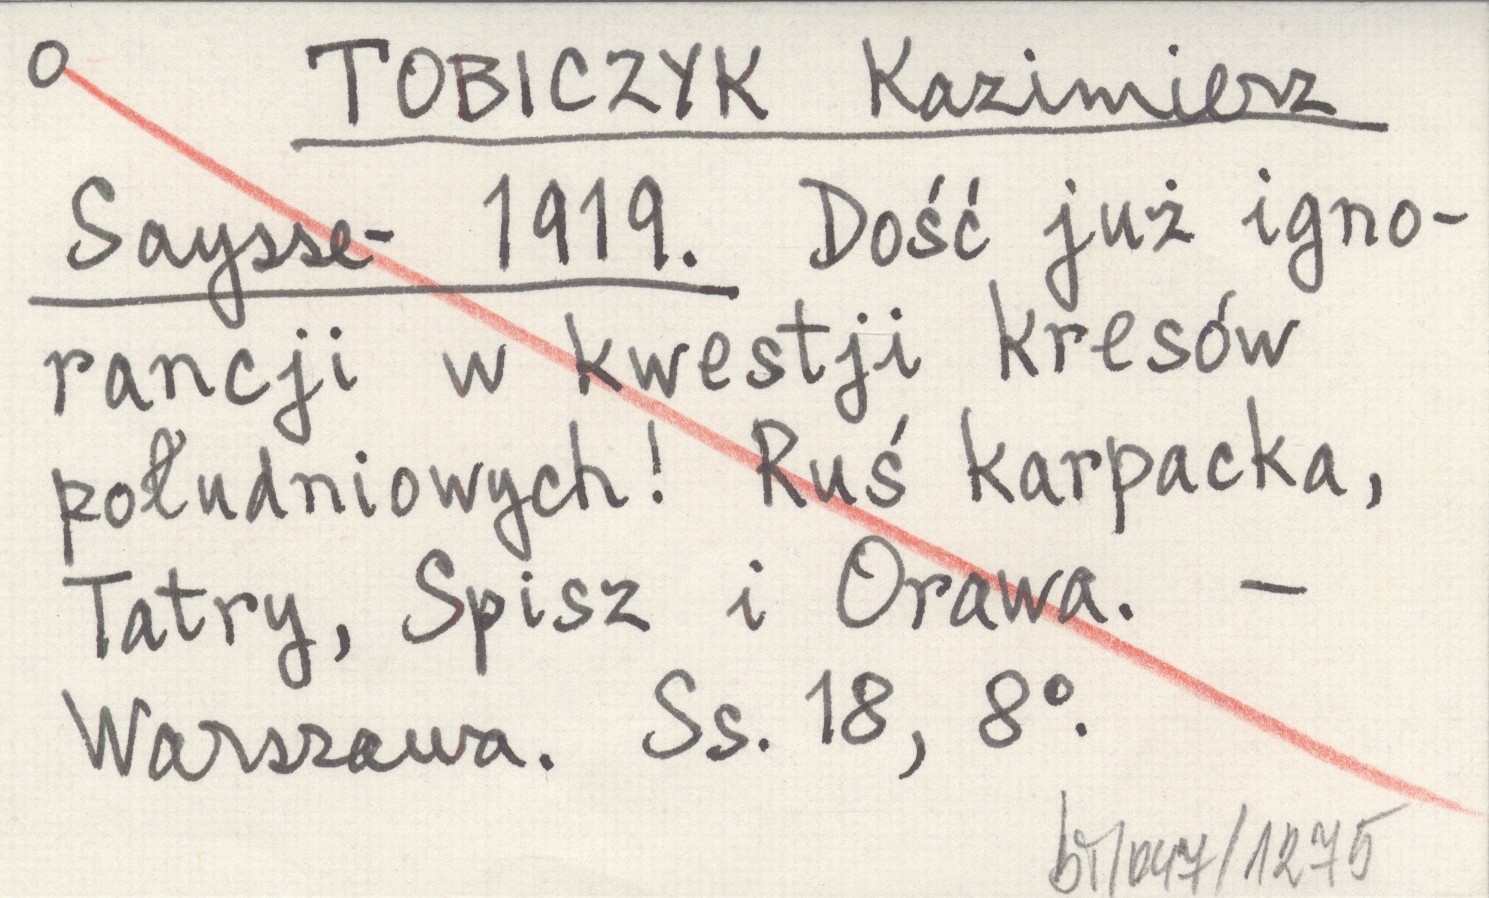 O TOBICZYK Kazimierz
Saysse- 1919. Dość już igno-
rancji w kwestji kresów
południowych! Ruś karpacka,
Tatry, Spisz i Orawa. —
Warszawa. Ss. 18, 8°.
/1275